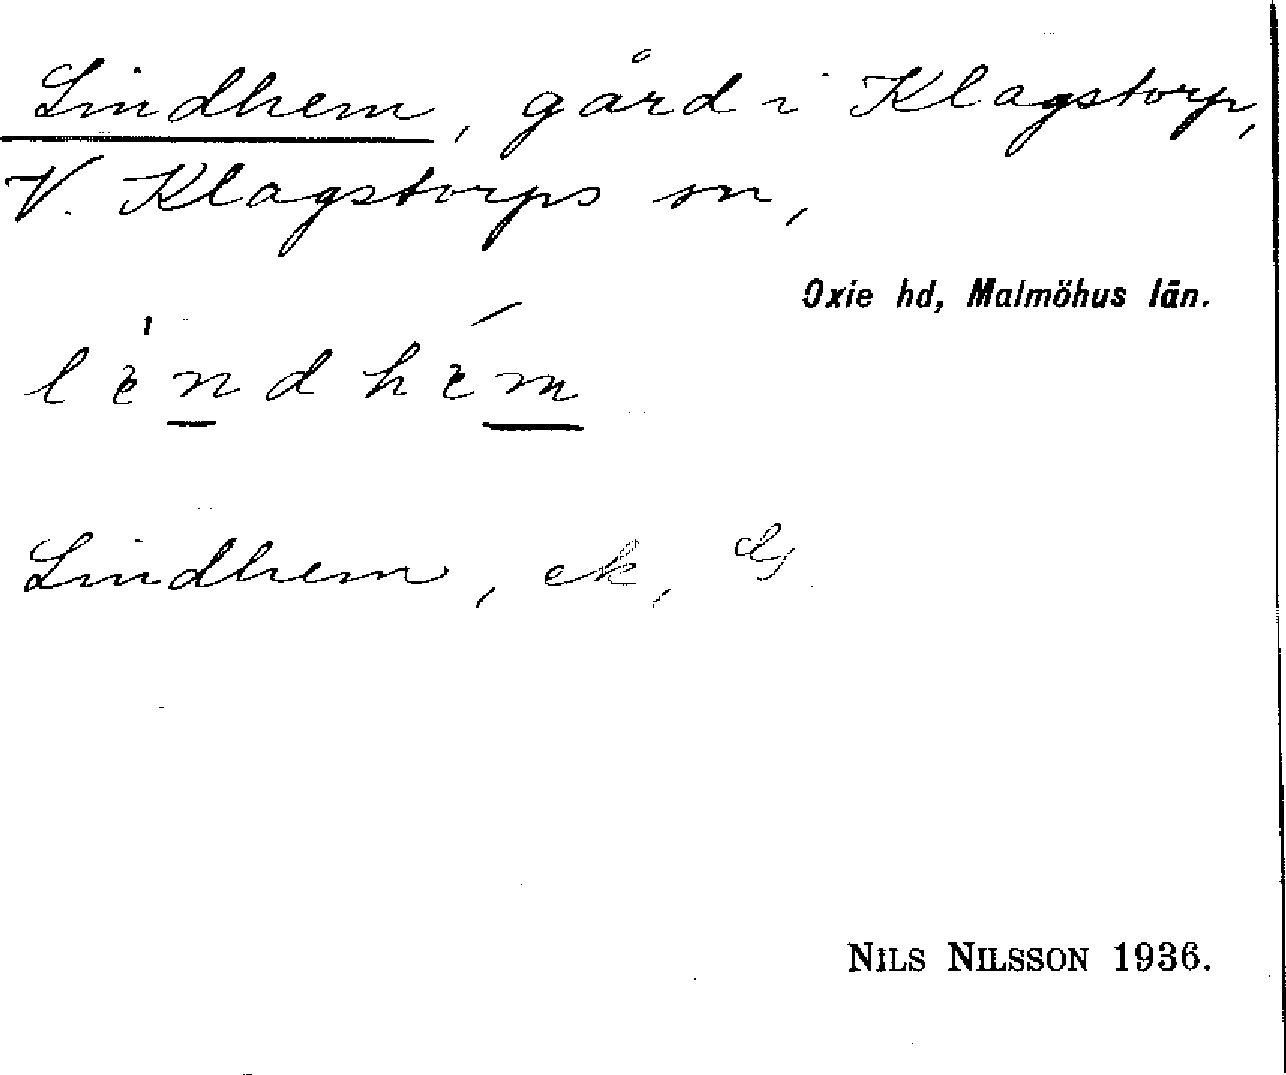 Lindhem, gård i Klagstorp,
V. Klagstorps sn,
Oxie hd, Malmöhus län.
Lindhem, ek,
NILS NILSSON 1936.